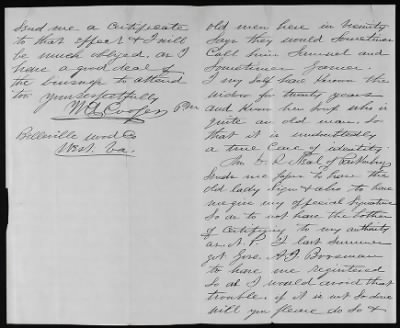 old men here in vicinity
says they would sometimes
call him Samuel and
sometimes James.
I my self have known the
widow for twenty years
and know her son who is
quite an old man. So
that it is undoubtedly
a true case of identity.
D. R. Neal of Parkersburg
sends me papers to have the
old lady sign & also to have
me give my official signature
So as to not have the bother
of certifying to my authority
as N. P. I last summer
got Gov. A. I. Boreman
to have me registered
So as I would avoid that
trouble. if it is not so done
will you please do so &
Send me a Certificate
to that effect & I will
be much obliged, as I
have a good deal of
the business to attend
too yours respectfully
M A Cooper P M
Belleville Wood Co
West Va.